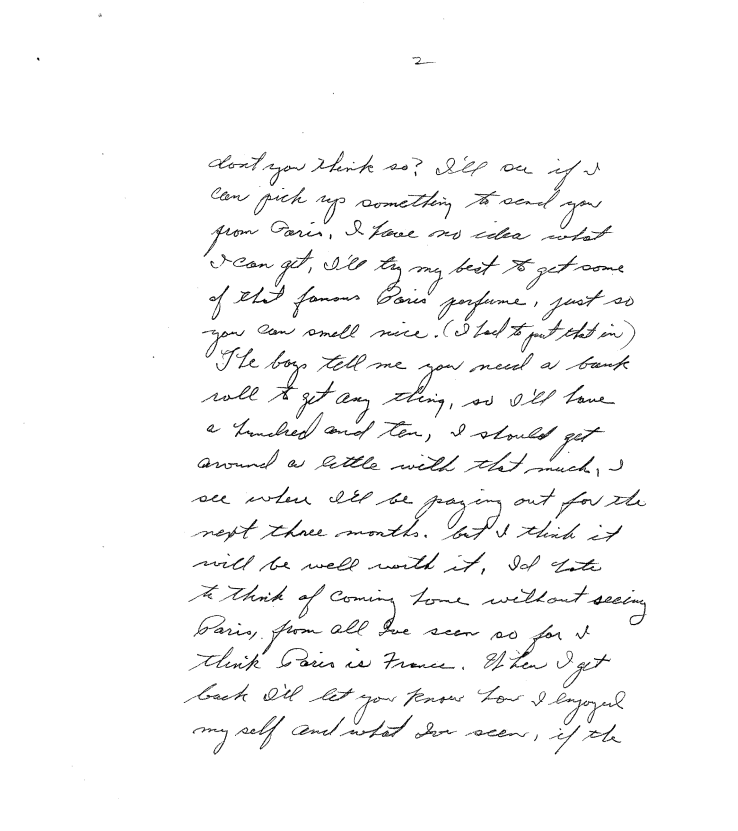 2
dont you think so? I'll see if I
can pick up something to send you
from Paris, I have no idea what
I can get, I'll try my best to get some
of that famous Paris perfume, just so
you can smell nice. (I had to put that in)
The boys tell me you need a bank
roll to get any thing, so I'll have
a hundred and ten, I should get
around a little with that much, I
see where I'll be paying out for the
next three months. but I think it
will be well worth it, Id hate
to think of coming home without seeing
Paris, from all Ive seen so far I
think Paris is France. When I get
back I'll let you know how I enjoyed
my self and what Ive seen, if the